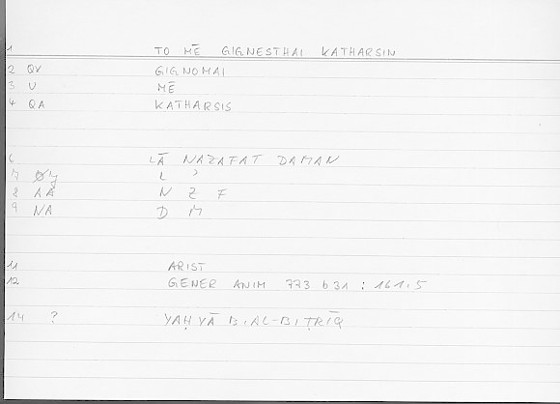 1 TO MĒ GIGNESTHAI KATHARSIN
2 QV GIGNOMAI
3 U MĒ
4 QA KATHARSIS
6 LĀ NAZAFAT DAMAN
7 L ʾ
8 AA N Z F
9 NA D M
11 ARIST
12 GENER ANIM 773 b 31 : 161.5
14 ? YAḤYĀ B. AL-BIṬRĪQ